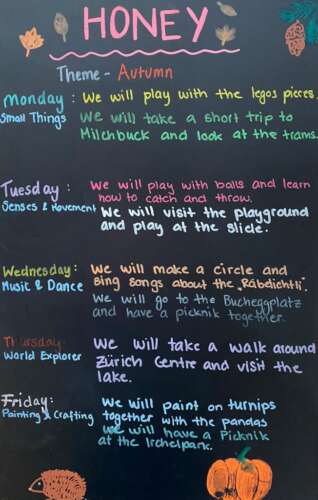 HONEY
Theme - Autumn
Monday : We will play with the legos pieces.
Small Things We will take a short trip to
Milchbuck and look at the trams.
Tuesday : We will play with balls and learn
Senses & Movement how to catch and throw.
We will visit the playground
and play at the slide.
Wednesday : We will make a circle and
Music & Dance sing songs about the „Räbeliechtli".
We will go to the Bucheggplatz
and have a picknik together.
Thursday: We will take a walk around
World Explorer Zürich Centre and visit the
lake.
Friday: We will paint on turnips
Painting & Crafting together with the pandas
We will have a Picknik
at the Irchelpark.